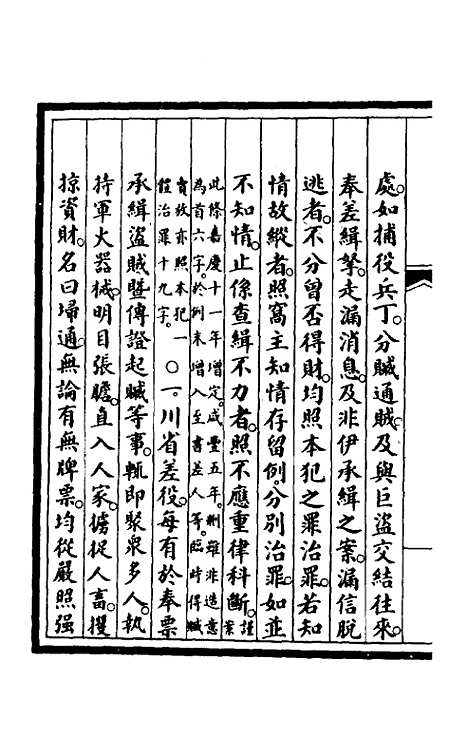 處。如捕役兵丁。分贓通賊。及與巨盜交結往來。
奉差緝拏。走漏消息。及非伊承緝之案。漏信脫
逃者。不分曾否得財。均照本犯之罪治罪。若知
情故縱者。照窩主知情存留例。分別治罪。如並
不知情。止係查緝不力者。照不應重律科斷。謹案
此條嘉慶十一年增定。咸豐五年。刪雖非造意
為首六字。於例末增入至書差人等。臨時得贓
賣放亦照本犯一
體治罪十九字。
○一。川省差役。每有於奉票
承緝盜賊暨傳證起贓等事。輒即聚眾多人。執
持軍火器械。明目張膽。直入人家。擄捉人畜。攫
掠資財。名曰埽通。無論有無牌票。均從嚴照强